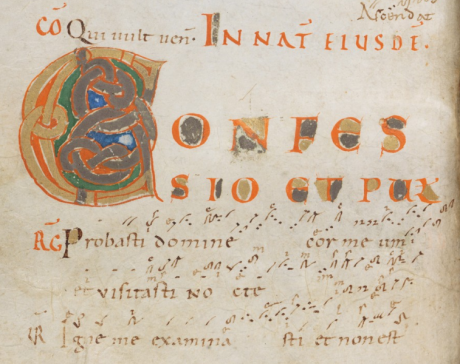 CO Qui vult ven. IN NAT EIUSDE.
CONFES
SIO ET PUL
RG Probasti domine cor me um
et visitasti no cte
Igne me examina sti et non est